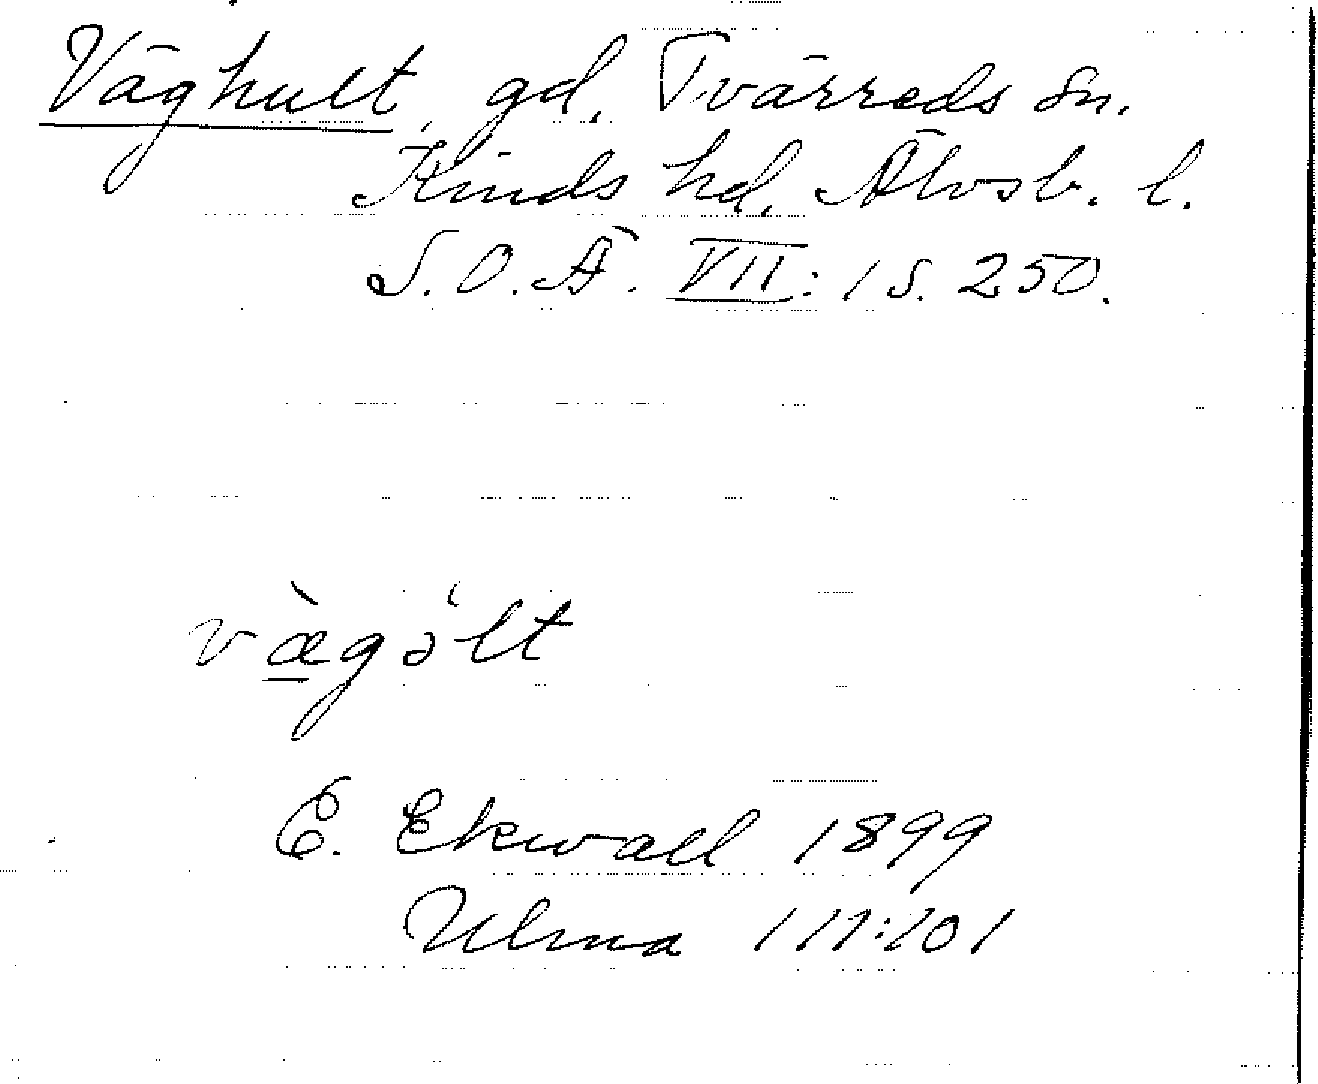 Väghult, gd. Tvärreds sn.
Kinds hd. Älvsb. l.
S.O.Ä. VII: 1 s. 250.
væ̀gə̀lt
E. Ekwall 1899
Ulma 111:101